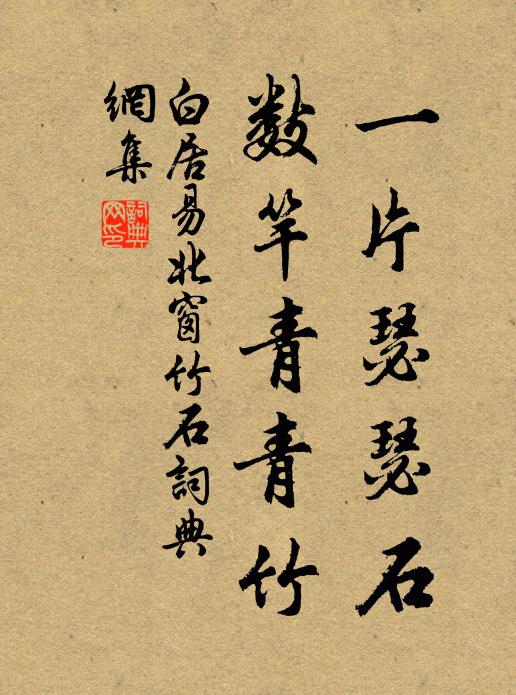 一片瑟瑟石
数竿青青竹
白居易北窗竹石詞典
網集
詞典网印